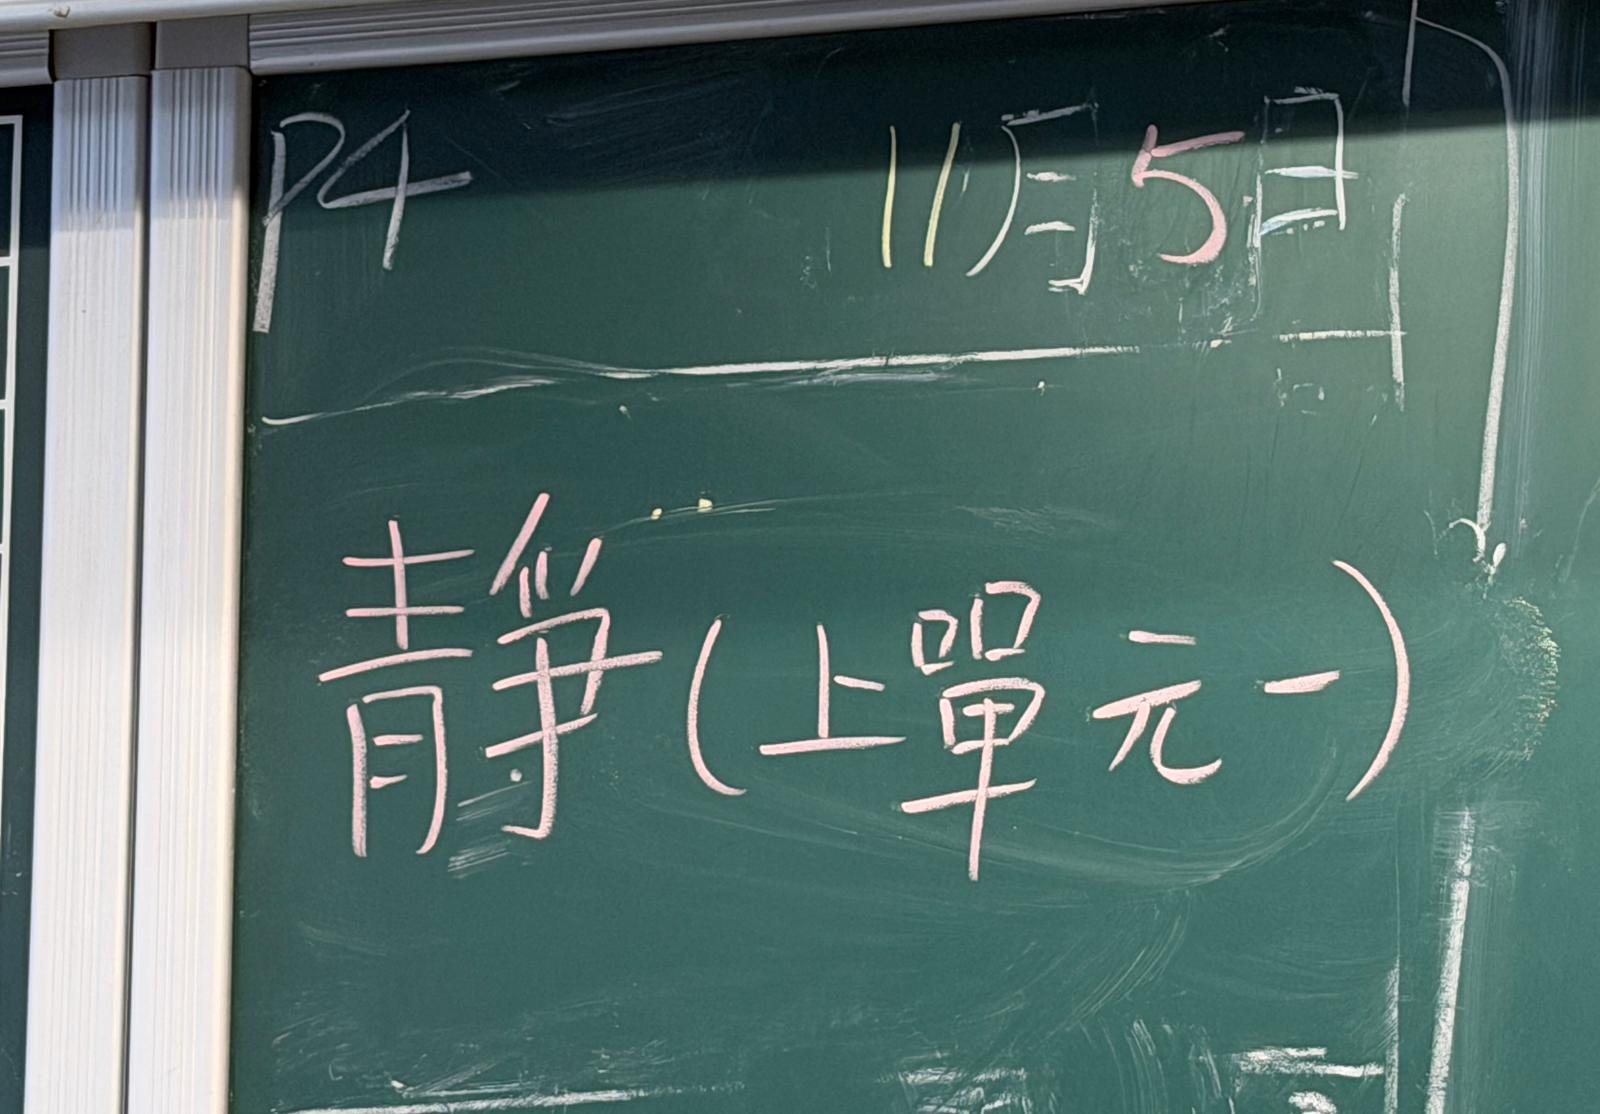 P4 11月5日
靜(上單元一)